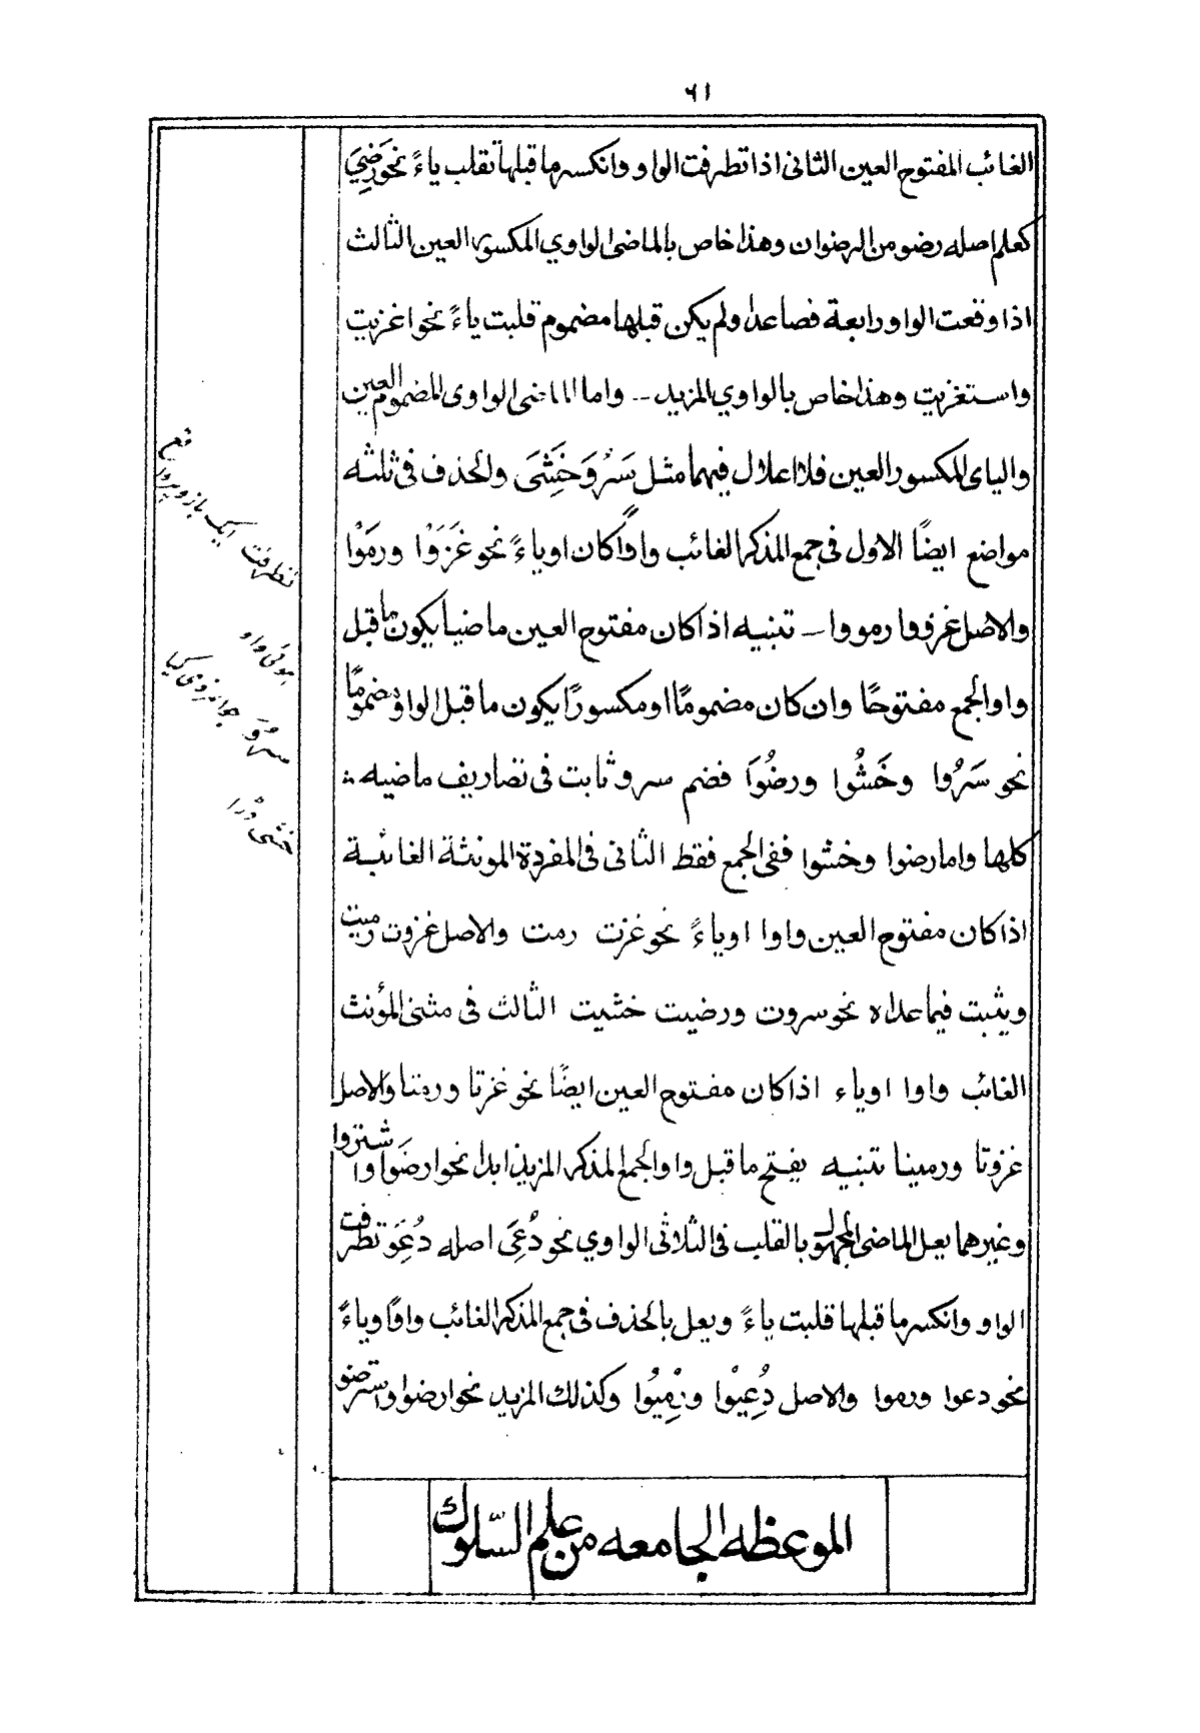 ٦١
الغائب المفتوح العين الثانى اذا تطرفت الواو وانكسر ما قبلها تقلب ياءً نحو رَضِيَ
كعلم اصله رضو من الرضوان وهذا خاص بالماضى الواوي المكسور العين الثالث
اذا وقعت الواو رابعة فصاعدا ولم يكن قبلها مضموم قلبت ياءً نحو اغزيت
واستغزيت وهذا خاص بالواوي المزيد -- واما الماضى الواوى المضموم العين
والياى المكسور العين فلا اعلال فيهما مثل سَرُوَ خَشِىَ والحذف فى ثلثه
مواضع ايضًا الاول فى جمع المذكر الغائب واوًا كان اوياءً نحو غَزَوْا ورمَوْا
والاصل غزووا رموواـ تنبيه اذا كان مفتوح العين ماضيا يكون ما قبل
واو الجمع مفتوحًا وان كان مضمومًا او مكسورًا يكون ما قبل الواو مضمومًا
نحو سَرُوا وخَشُوا ورضُوَا فضم سرو ثابت فى تصاريف ماضيه
كلها واما رضوا وخشوا ففى الجمع فقط الثانى فى المفردة المونثة الغائبة
اذا كان مفتوح العين واوا اوياءً نحو غزت رمت والاصل غزوت رميت
ويثبت فيما عداه نحو سروت ورضيت خشيت الثالث فى مثنى المؤنث
الغائب واوا اوياء اذا كان مفتوح العين ايضًا نحو غزتا ورمتا والاصل
غزوتا ورمينا تنبيه يفتح ما قبل واو الجمع المذكر المزيد ابدا نحو ارضَوا واشتروا
وغيرهما يعل الماضى المجهول بالقلب فى الثلاثى الواوي نحو دُعِىَ اصله دُعِوَ تطرفت
الواو وانكسر ما قبلها قلبت ياءً ويعل بالحذف فى جمع المذكر الغائب واوًا وياءً
نحو دعوا ورموا والاصل دُعِيْوا ورُمِيُوا وكذلك المزيد نحو ارضوا واسترضو
تطرفت ايک بازو پر واقع
ہوئی واو
سروَ جوانمردی کیا
خشى ڈرا
الموعظه الجامعه من علم السّلوك